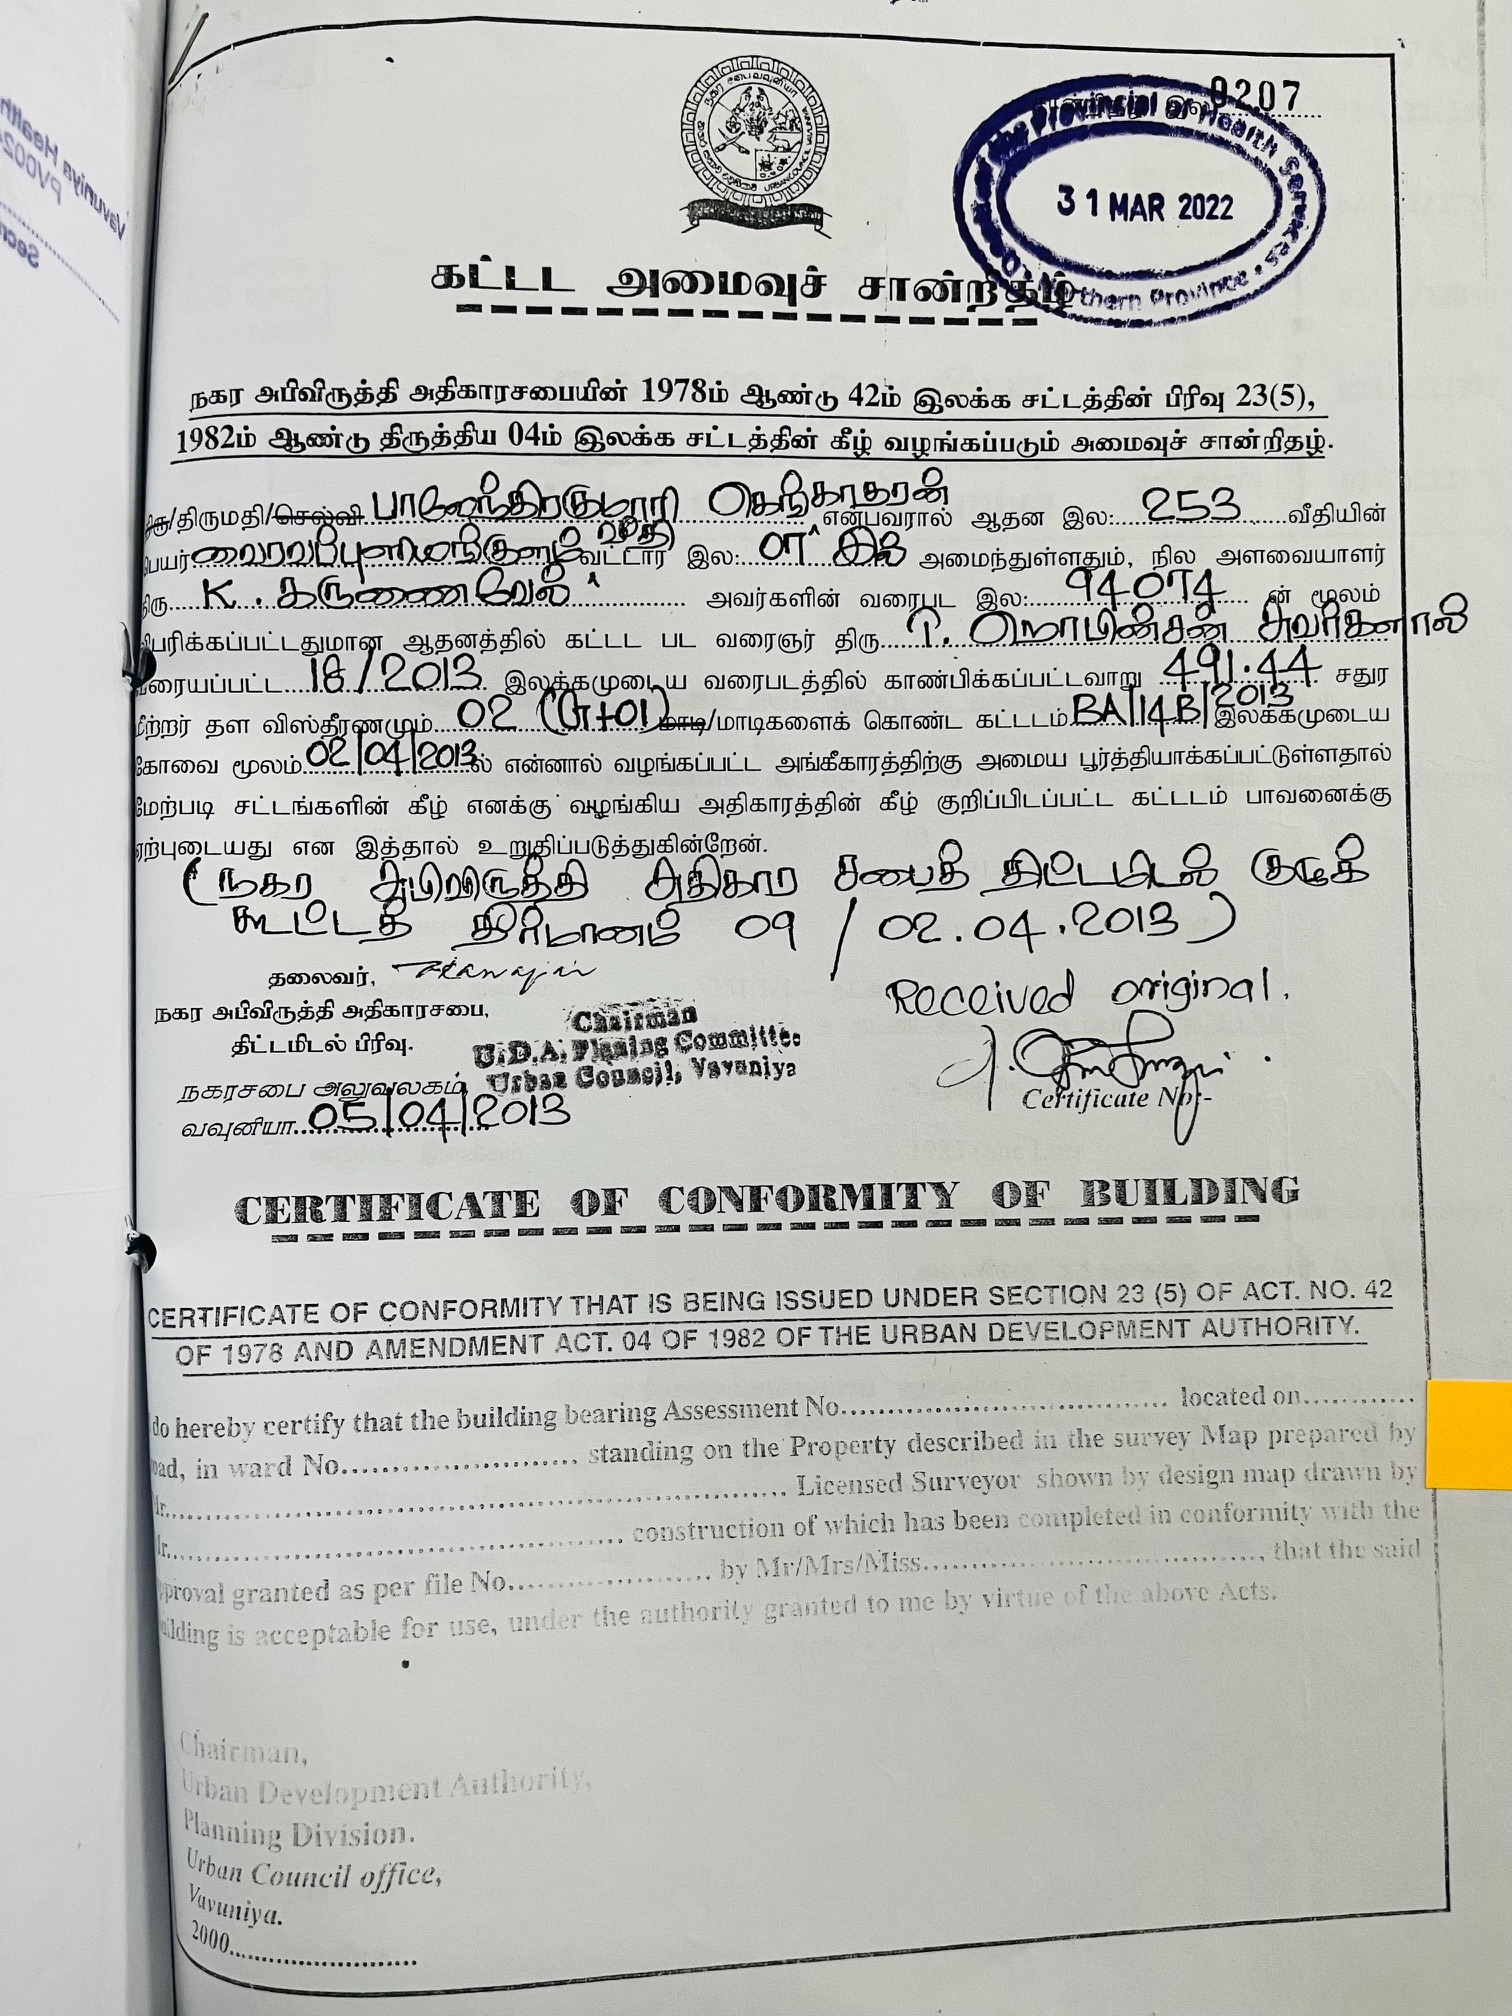 0207
Provincial Health Services
Northern Province
31 MAR 2022
URBAN COUNCIL
கட்டட அமைவுச் சான்றிதழ்
நகர அபிவிருத்தி அதிகாரசபையின் 1978ம் ஆண்டு 42ம் இலக்க சட்டத்தின் பிரிவு 23(5),
1982ம் ஆண்டு திருத்திய 04ம் இலக்க சட்டத்தின் கீழ் வழங்கப்படும் அமைவுச் சான்றிதழ்.
திரு/திருமதி/செல்வி என்பவரால் ஆதன இல:......253......வீதியின்
பெயர் வைரவப்புளியங்குளம் வீதி வட்டார இல: அமைந்துள்ளதும், நில அளவையாளர்
திரு......K. கருணைவேல்...... அவர்களின் வரைபட இல:......94074...... ன் மூலம்
விபரிக்கப்பட்டதுமான ஆதனத்தில் கட்டட பட வரைஞர் திரு...... அவர்களால்
வரையப்பட்ட...18/2013... இலக்கமுடைய வரைபடத்தில் காண்பிக்கப்பட்டவாறு 491.44 சதுர
மீற்றர் தள விஸ்தீரணமும்...02 (G+01) மாடி/மாடிகளைக் கொண்ட கட்டடம் BA/14B/2013 இலக்கமுடைய
கோவை மூலம் 02/04/2013ல் என்னால் வழங்கப்பட்ட அங்கீகாரத்திற்கு அமைய பூர்த்தியாக்கப்பட்டுள்ளதால்
மேற்படி சட்டங்களின் கீழ் எனக்கு வழங்கிய அதிகாரத்தின் கீழ் குறிப்பிடப்பட்ட கட்டடம் பாவனைக்கு
ஏற்புடையது என இத்தால் உறுதிப்படுத்துகின்றேன்.
(நகர அபிவிருத்தி அதிகார சபைத் திட்டமிடல் குழுக்
கூட்டத் தீர்மானம் 09 / 02.04.2013)
தலைவர்,
நகர அபிவிருத்தி அதிகாரசபை,
திட்டமிடல் பிரிவு.
நகரசபை அலுவலகம்
வவுனியா...05/04/2013
Chairman
U.D.A. Planing Committee
Urban Council, Vavuniya
Received original.
Certificate No:-
CERTIFICATE OF CONFORMITY OF BUILDING
CERTIFICATE OF CONFORMITY THAT IS BEING ISSUED UNDER SECTION 23 (5) OF ACT. NO. 42
OF 1978 AND AMENDMENT ACT. 04 OF 1982 OF THE URBAN DEVELOPMENT AUTHORITY.
do hereby certify that the building bearing Assessment No.................. located on............
oad, in ward No.................. standing on the Property described in the survey Map prepared by
Mr.................. Licensed Surveyor shown by design map drawn by
Mr.................. construction of which has been completed in conformity with the
approval granted as per file No.................. by Mr/Mrs/Miss.................., that the said
building is acceptable for use, under the authority granted to me by virtue of the above Acts.
Chairman,
Urban Development Authority,
Planning Division.
Urban Council office,
Vavuniya.
2000..................